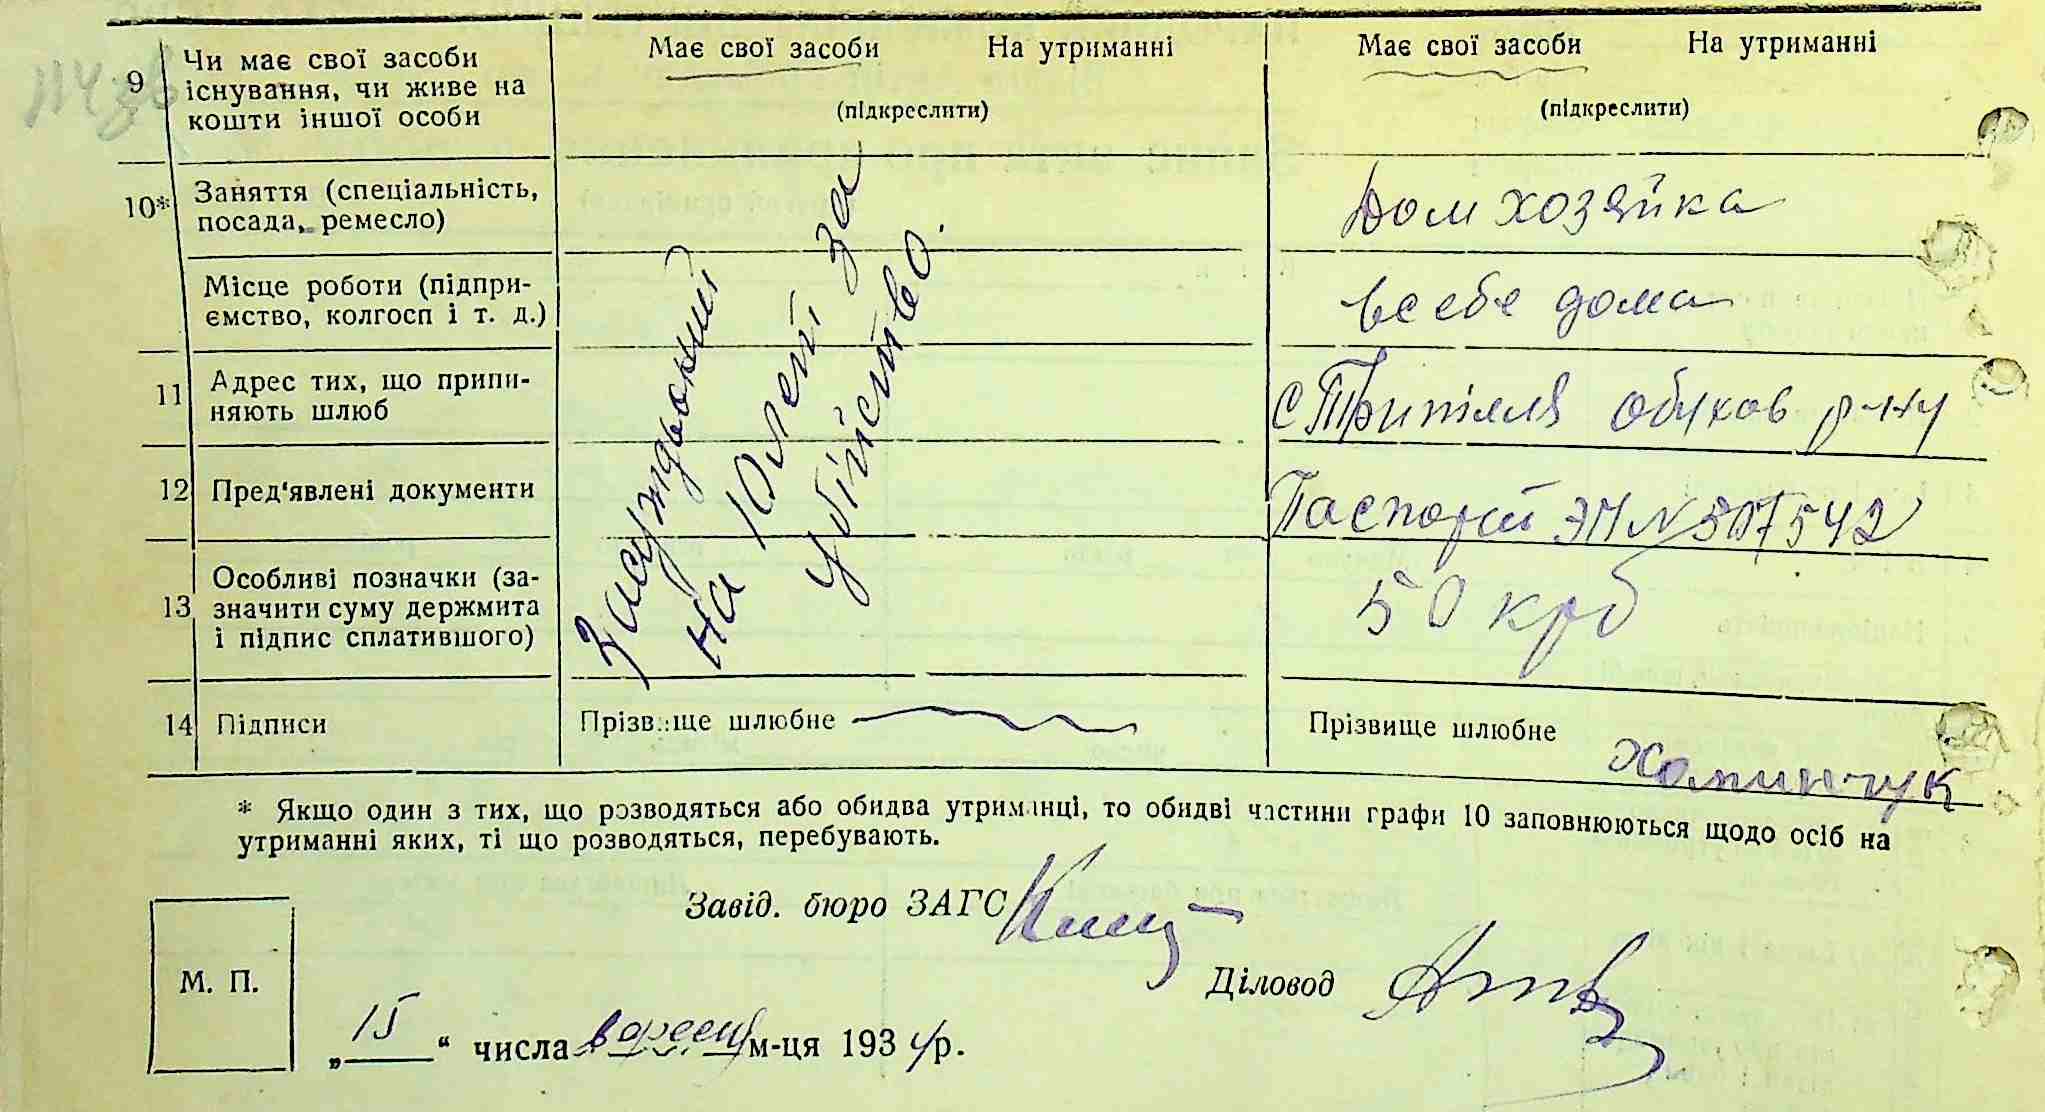 9 Чи має свої засоби існування, чи живе на кошти іншої особи
Має свої засоби На утриманні
(підкреслити)
Має свої засоби На утриманні
(підкреслити)
10* Заняття (спеціальність, посада, ремесло)
Дом хозяйка
Місце роботи (підпри-
ємство, колгосп і т. д.)
всебе дома
Засуждьоний
на 10 лет за
убійство.
11 Адрес тих, що припи-
няють шлюб
с Трипілля обухов р-ну
12 Пред'явлені документи
Паспорт ЭМ № 507542
13 Особливі позначки (за-
значити суму держмита
і підпис сплатившого)
50 крб
14 Підписи
Прізвище шлюбне
Прізвище шлюбне
Хоминчук
* Якщо один з тих, що розводяться або обидва утриманці, то обидві частини графи 10 заповнюються щодо осіб на
утриманні яких, ті що розводяться, перебувають.
Завід. бюро ЗАГС
Діловод
М. П.
„15“ числа вересня м-ця 1934 р.